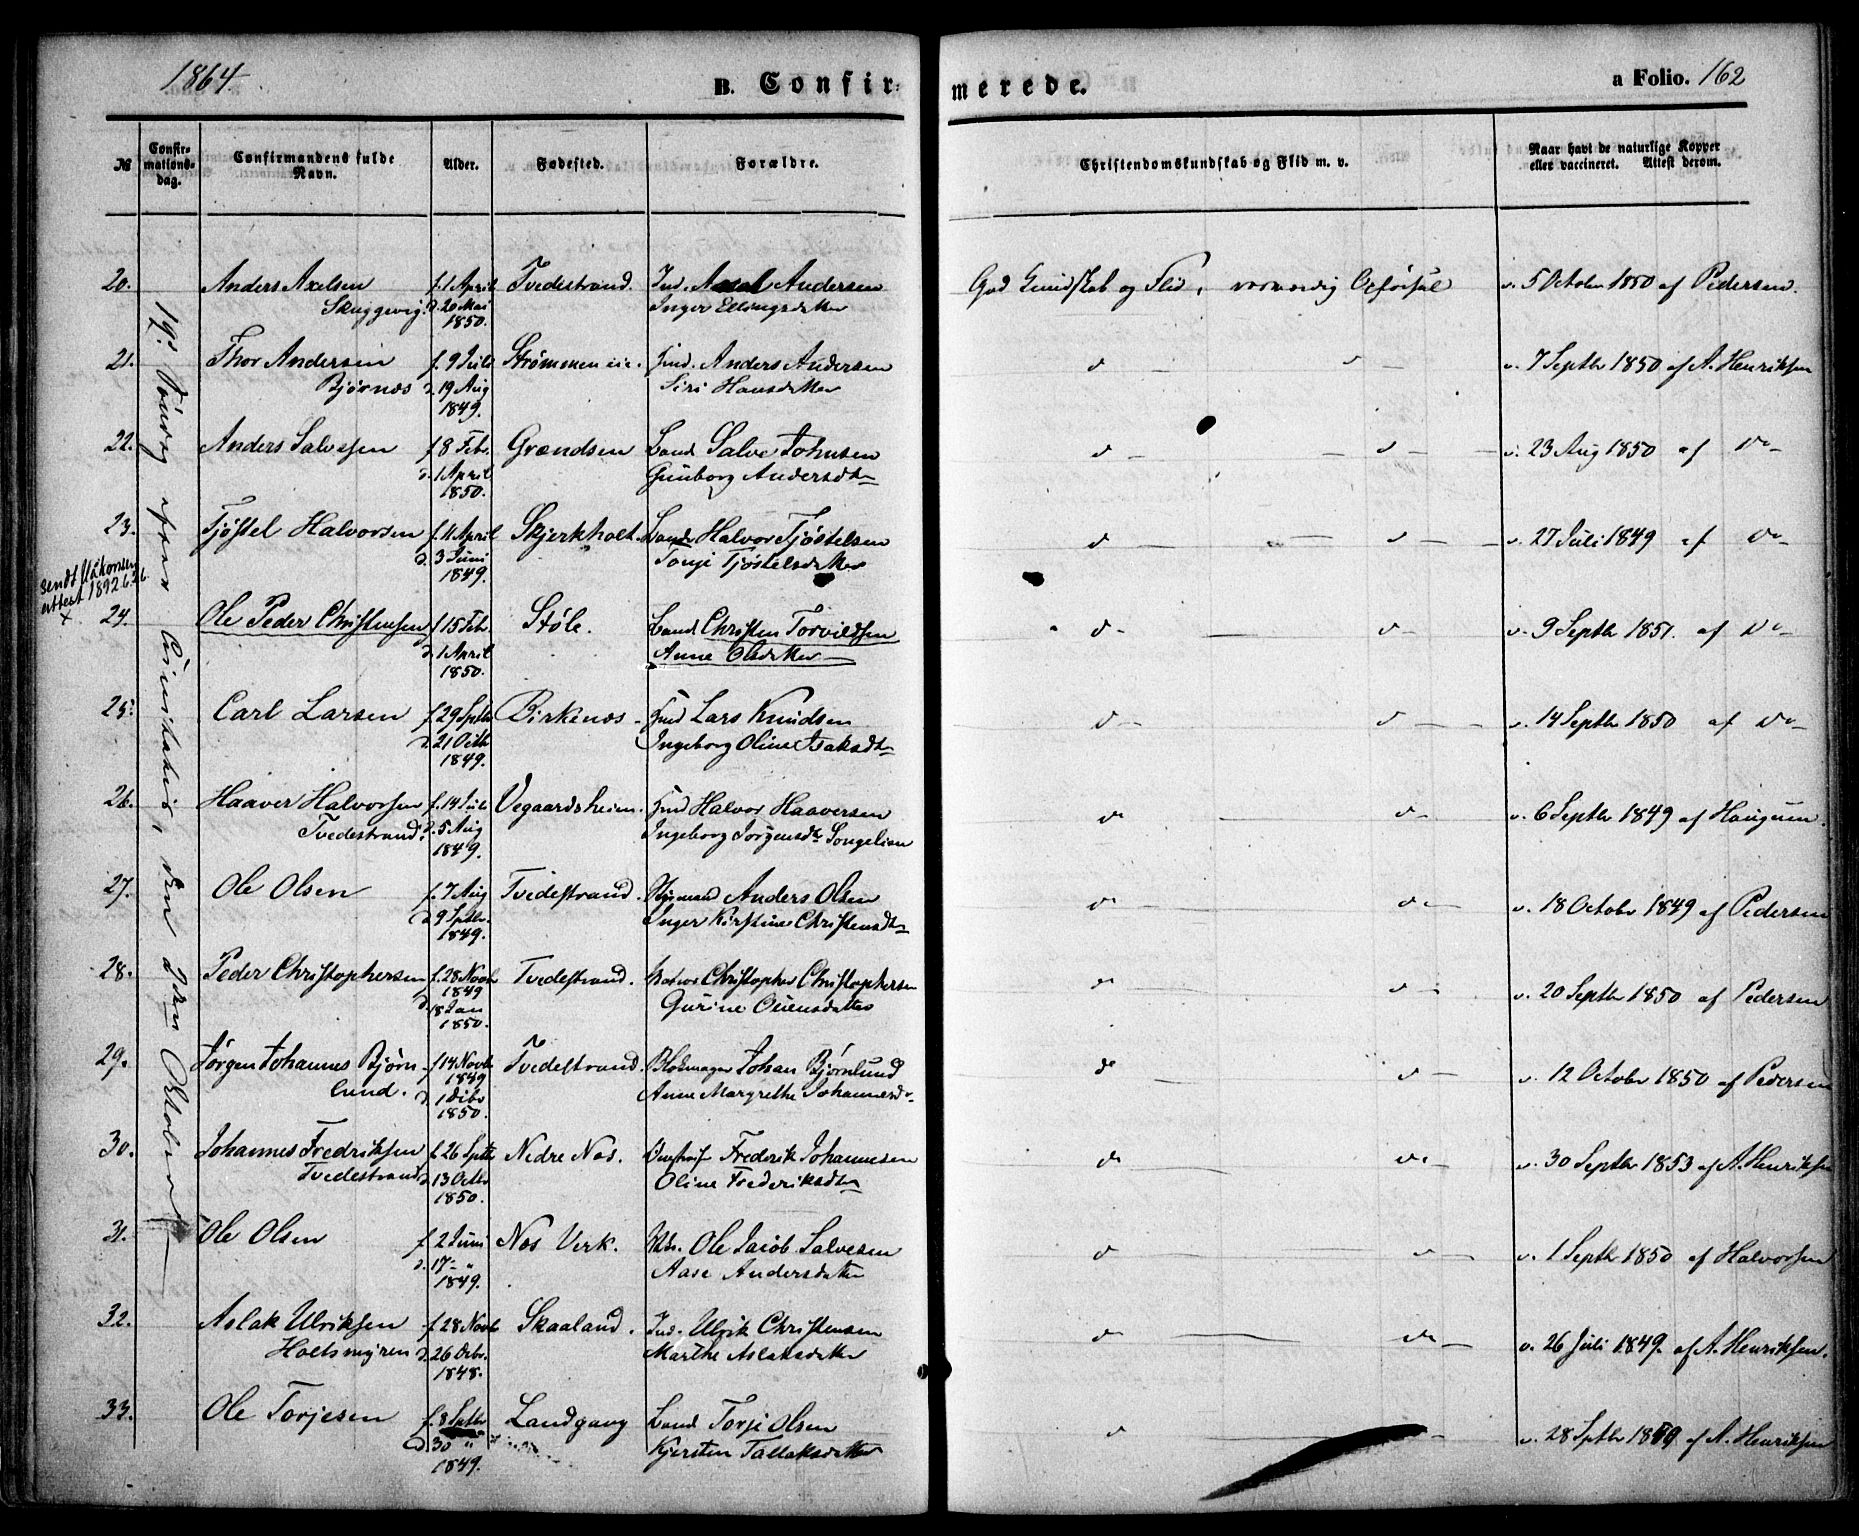 1864.
B. Confir-
merede.
a Folio. 162
№
Confir-
mations-
dag.
Confirmandens fulde
Navn.
Alder.
Fødested.
Forældre.
Christendomskundskab og Flid m. v.
Naar havt de naturlige Kopper
eller vaccineret. Attest derom.
den 2den October
20. Anders Axelsen f. 1 April Tvedestrand. Ind. Axel Andersen God Kundskab og Flid, v. 5 Octobr 1850 af Pedersen.
Skuggevig. d. 20 Mai Inger Ellingsdatter
1850.
21. Thor Andersen f. 9 Juli Strømmen eie. Hmd. Anders Andersen d v. 7 Septbr 1850 af A. Henriksen
Bjørnos d. 19 Aug Siri Hansdatter
1849.
22. Anders Salvesen f. 8 Febr. Grændsen Salve Johnsen d v. 23 Aug 1850 af do
d. 1 April Gunborg Andersdtr
1850.
23. Tjøstel Halvorsen f. 11 April Skjerkholt. Halvor Tjøstelsen d v. 27 Juli 1849 af do
d. 3 Juni Tonje Tjøstelsdatter
1849.
sendt
attest 1892 6/26.
x
24. Ole Peder Christensen f. 15 Febr. Støle. Christen Torvildsen d v. 9 Septbr 1851. af do
d. 1 April Anne Olsdatter
1850.
25. Carl Larsen f. 29 Septbr Birkenæs Hmd Lars Knudsen d v. 14 Septbr 1850 af do
d. 21 Octb Ingeborg Oline Isaksdtr
1849.
26. Haaver Halvorsen f. 14 Juli Vegaardsheien. Hmd Halvor Haaversen do v. 6 Septbr 1849 af Haugum.
Tvedestrand. d. 5 Aug Ingeborg Jørgensdtr Songelien
1849.
27. Ole Olsen f. 7 Aug Tvedestrand. Styrmand Anders Olsen do v. 18 Octobr 1849 af Pedersen
d. 9 Septbr. Inger Kirstine Christensdtr
1849.
28. Peder Christophersen f. 28 Novb Tvedestrand. Matros Christopher Christophersen do v. 20 Septbr 1850 af Pedersen
1849 Gurine Ouensdatter
d. 18 Jan
1850.
29. Jørgen Johannes Bjørn- f. 14 Novb Tvedestrand. Blokmager Johan Bjørnlund do v. 12 Octobr 1850 af Pedersen
lund. 1849 Anne Margrethe Johannesd.
d. 1
1850.
30. Johannes Fredriksen f. 26 Septb Nedre Nes. Frederik Johannesen do v. 30 Septbr 1853 af A. Henriksen
Tvedestrand d. 13 Octbr Oline Frederiksdtr
1850.
31. Ole Olsen f. 2 Juni Nes Verk. Ole Jacob Salvesen d v. 1 Septbr 1850 af Halvorsen
d. 17 - " Aase Andersdatter
1849.
32. Aslak Ulriksen f. 28 Novb Skaaland. Ind. Ulrik Christensen do v. 26 Juli 1849. af A. Henriksen.
Holtsmyren d. 26 Dcbr. Marthe Aslaksdatter
1848.
33. Ole Torjesen f. 8 Septbr Landgang Torje Olsen d v. 28 Septbr 1849 af A. Henriksen
d. 30 " Kjersten Tallaksdatter
1849.